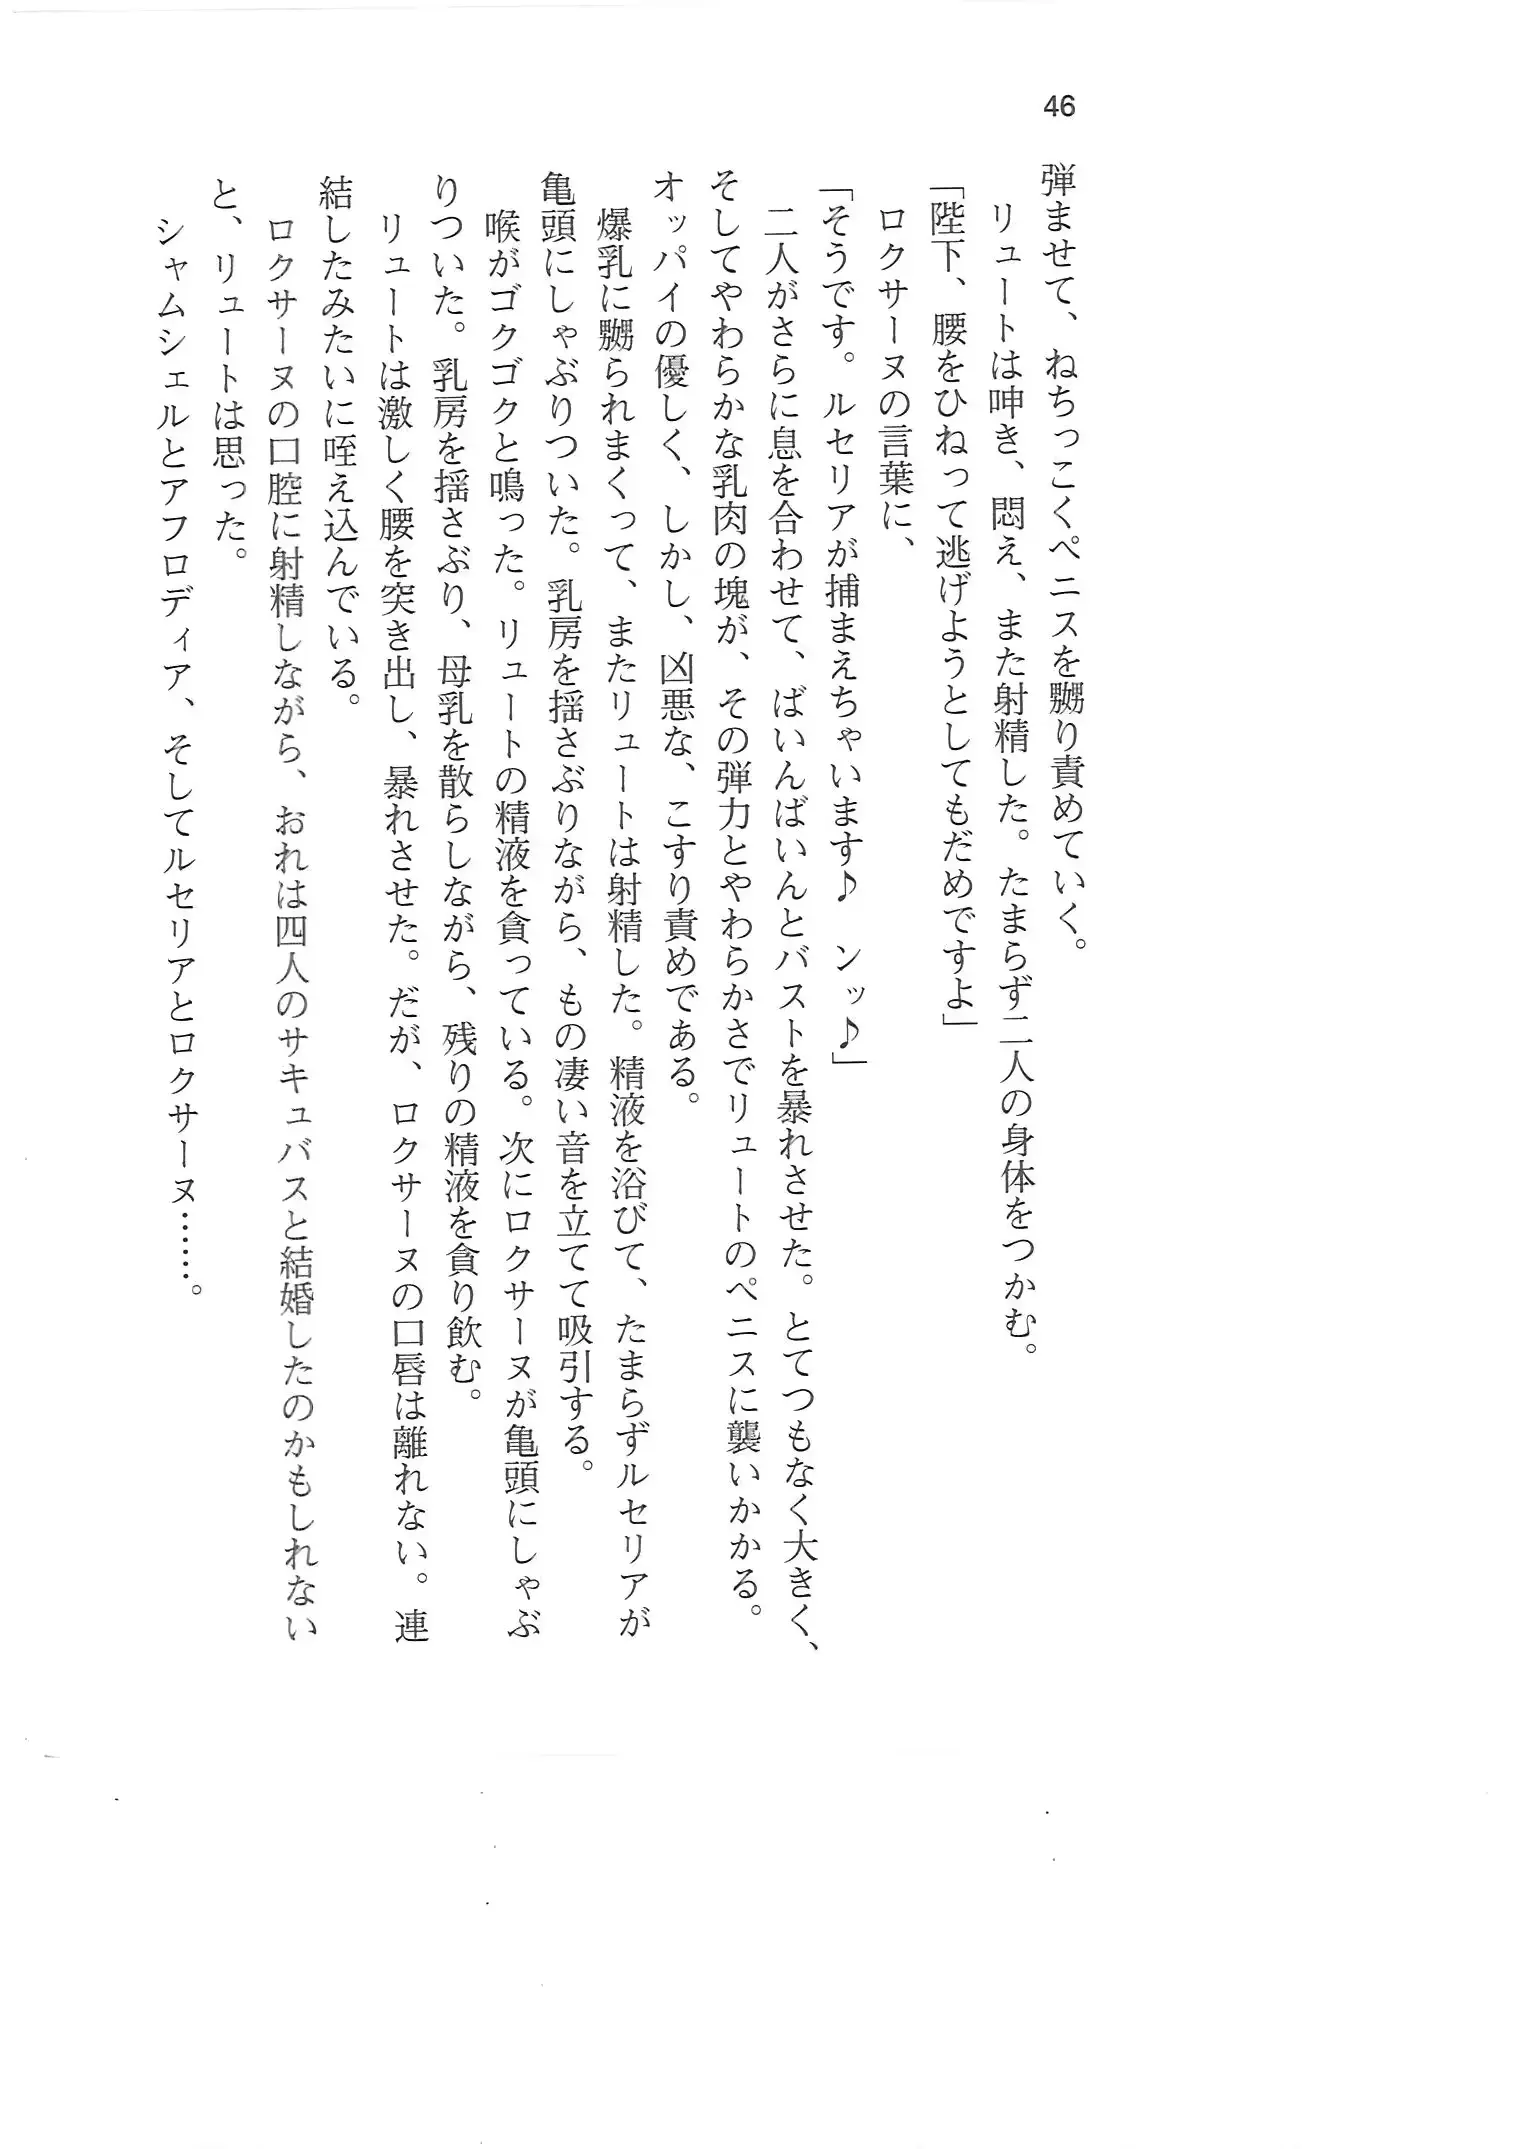 46
弾ませて、ねちっこくペニスを嬲り責めていく。
リュートは呻き、悶え、また射精した。たまらず二人の身体をつかむ。
「陛下、腰をひねって逃げようとしてもだめですよ」
ロクサーヌの言葉に、
「そうです。ルセリアが捕まえちゃいます♪　ンッ♪」
二人がさらに息を合わせて、ばいんばいんとバストを暴れさせた。とてつもなく大きく、
そしてやわらかな乳肉の塊が、その弾力とやわらかさでリュートのペニスに襲いかかる。
オッパイの優しく、しかし、凶悪な、こすり責めである。
爆乳に嬲られまくって、またリュートは射精した。精液を浴びて、たまらずルセリアが
亀頭にしゃぶりついた。乳房を揺さぶりながら、もの凄い音を立てて吸引する。
喉がゴクゴクと鳴った。リュートの精液を貪っている。次にロクサーヌが亀頭にしゃぶ
りついた。乳房を揺さぶり、母乳を散らしながら、残りの精液を貪り飲む。
リュートは激しく腰を突き出し、暴れさせた。だが、ロクサーヌの口唇は離れない。連
結したみたいに咥え込んでいる。
ロクサーヌの口腔に射精しながら、おれは四人のサキュバスと結婚したのかもしれない
と、リュートは思った。
シャムシェルとアフロディア、そしてルセリアとロクサーヌ……。